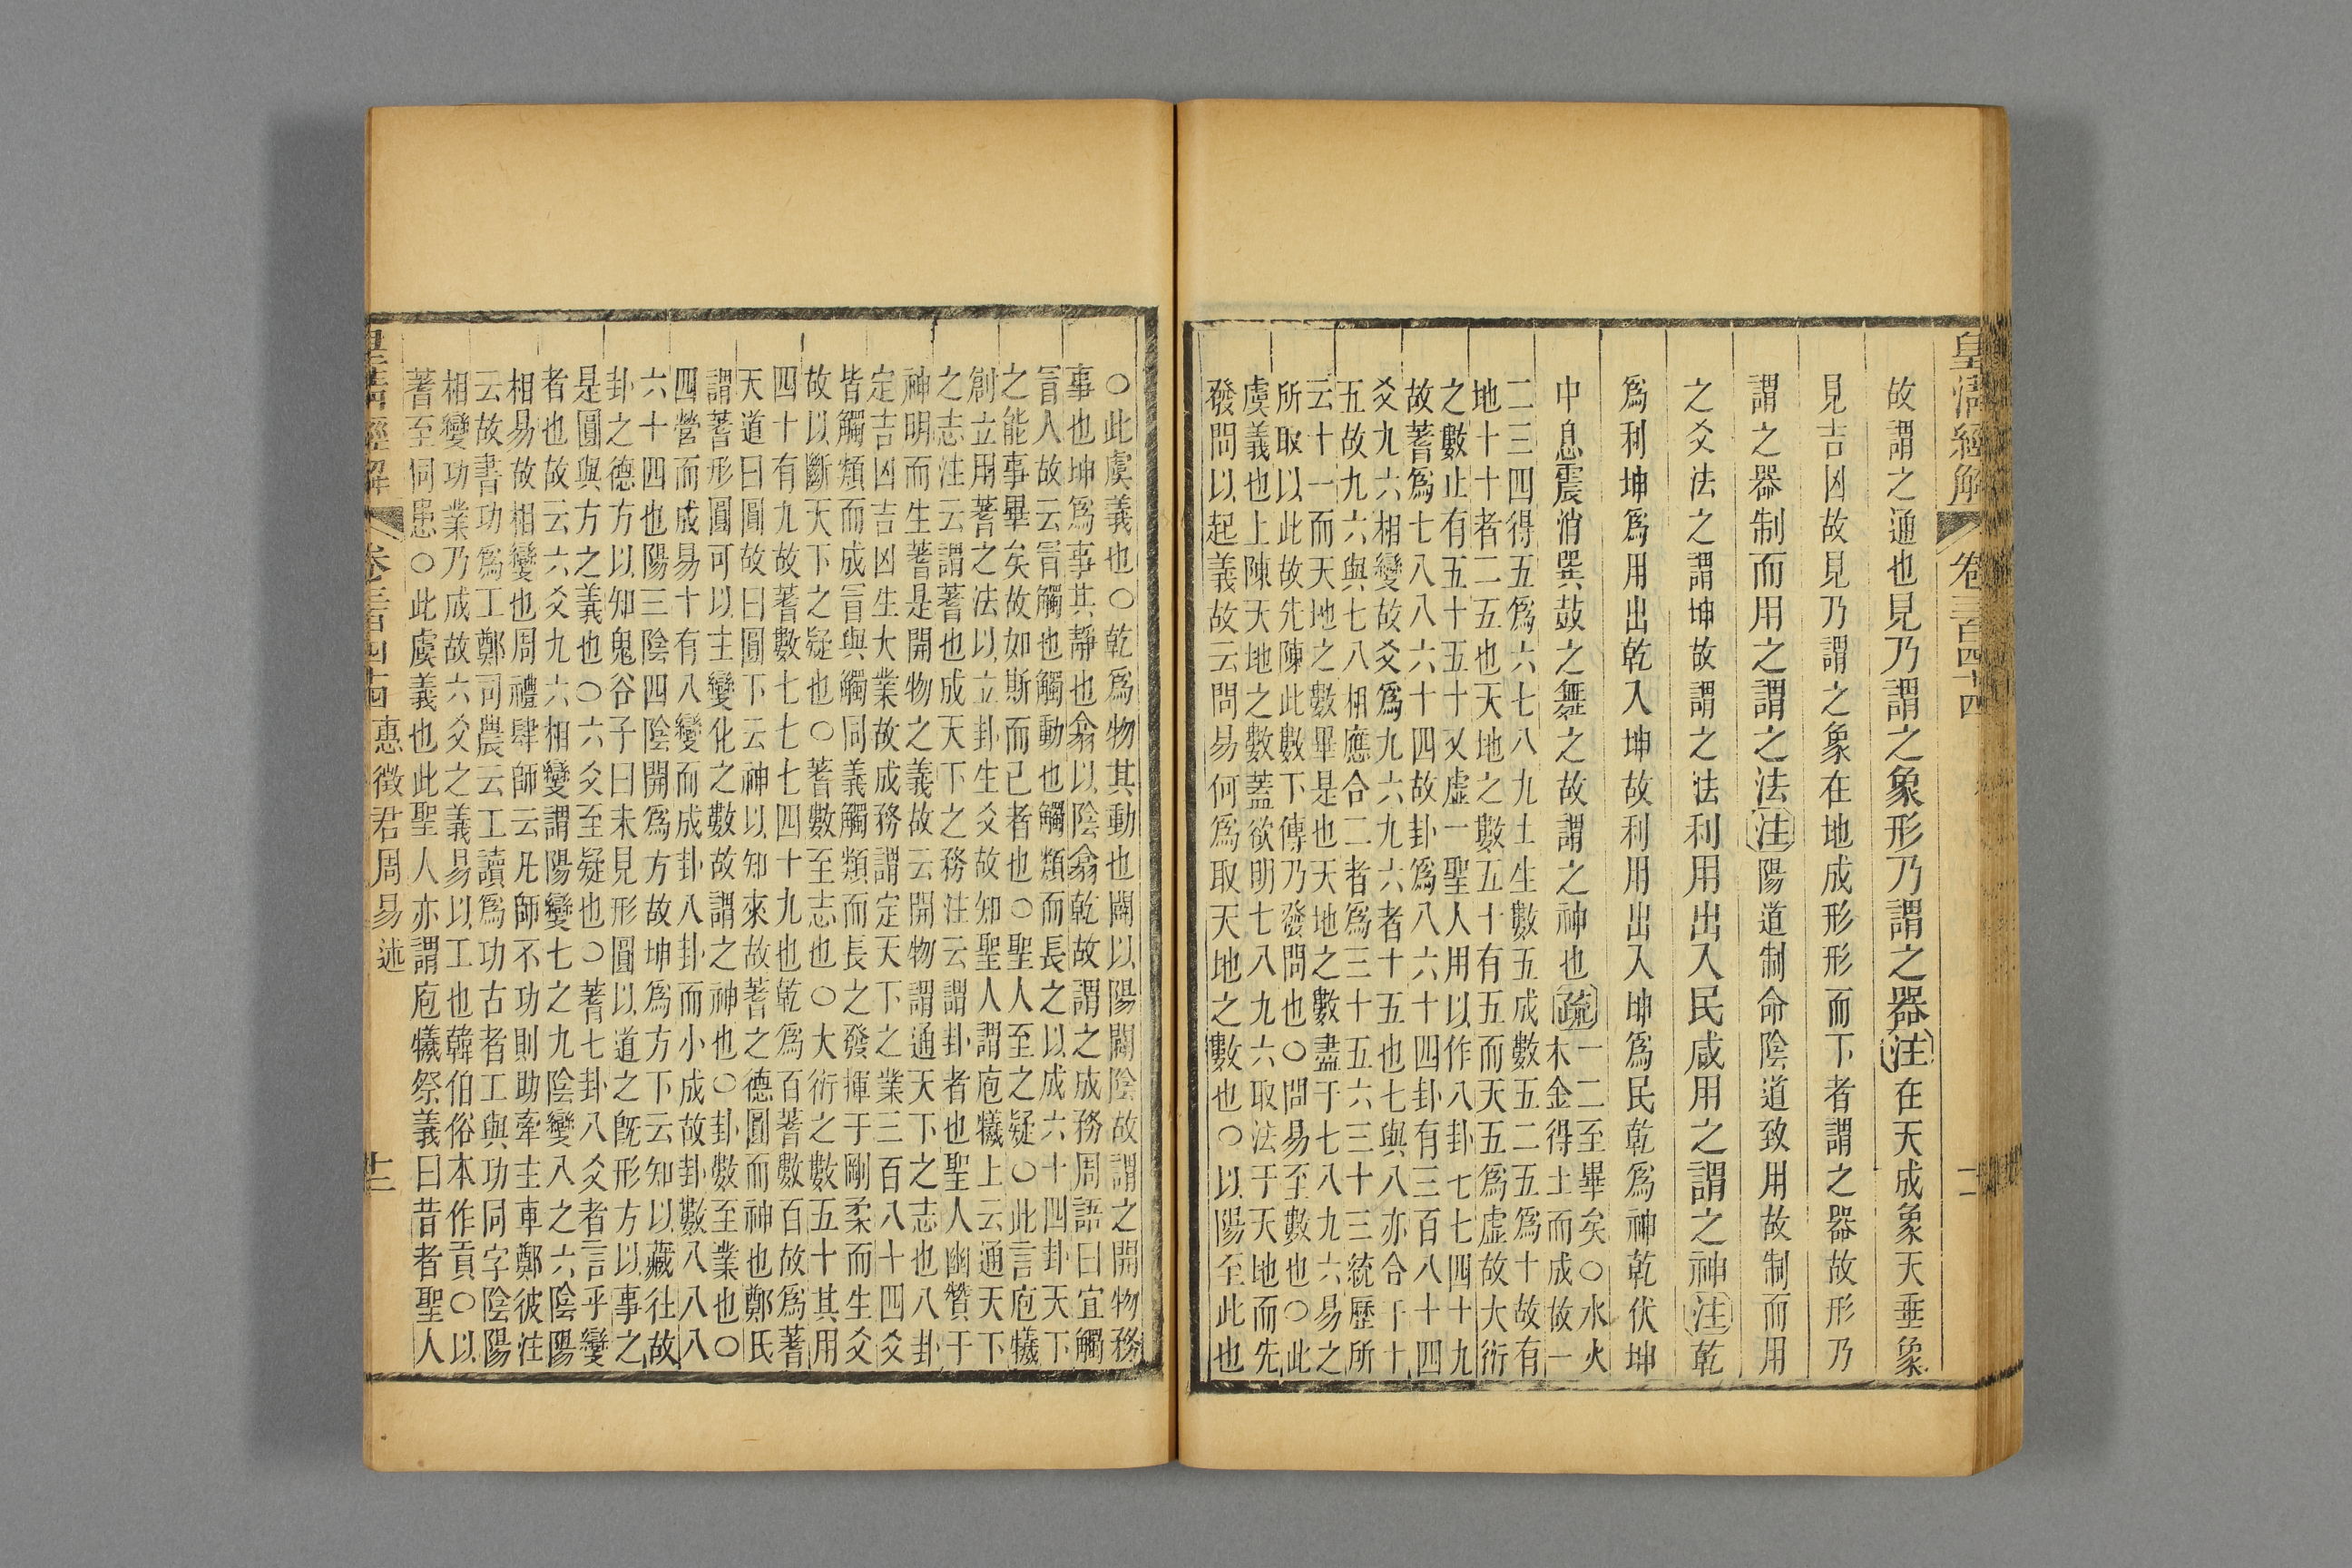 皇清經解 卷三百四十四 十一
故謂之通也見乃謂之象形乃謂之器注在天成象天垂象
見吉凶故見乃謂之象在地成形形而下者謂之器故形乃
謂之器制而用之謂之法注陽道制命陰道致用故制而用
之爻法之謂坤故謂之法利用出入民咸用之謂之神注乾
爲利坤爲用出乾入坤故利用出入坤爲民乾爲神乾伏坤
中息震消巽鼓之舞之故謂之神也疏
一二至畢矣○水火
木金得土而成故一
二三四得五爲六七八九土生數五成數五二五爲十故有
地十十者二五也天地之數五十有五而天五爲虛故大衍
之數止有五十五十乂虛一聖人用以作八卦七七四十九
故蓍爲七八八六十四故卦爲八六十四卦有三百八十四
爻九六相變故爻爲九六九六者十五也七與八亦合于十
五故九六與七八相應合二者爲三十五六三十三統歷所
云十一而天地之數畢是也天地之數盡于七八九六易之
所取以此故先陳此數下傳乃發問也○問易至數也○此
虞義也上陳天地之數蓋欲明七八九六取法于天地而先
發問以起義故云問易何爲取天地之數也○以陽至此也
○此虞義也○乾爲物其動也闢以陽闢陰故謂之開物務
事也坤爲事其靜也翕以陰翕乾故謂之成務周語曰宜觸
冒人故云冒觸也觸動也觸類而長之以成六十四卦天下
之能事畢矣故如斯而已者也○聖人至之疑○此言庖犧
創立用蓍之法以立卦生爻故知聖人謂庖犧上云通天下
之志注云謂蓍也成天下之務注云謂卦者也聖人幽贊于
神明而生蓍是開物之義故云開物謂通天下之志也八卦
定吉凶吉凶生大業故成務謂定天下之業三百八十四爻
皆觸類而成冒與觸同義觸類而長之發揮于剛柔而生爻
故以斷天下之疑也○蓍數至志也○大衍之數五十其用
四十有九故蓍數七七七四十九也乾爲百蓍數百故爲蓍
天道曰圓故曰圓下云神以知來故蓍之德圓而神也鄭氏
謂蓍形圓可以主變化之數故謂之神也○卦數至業也○
四營而成易十有八變而成卦八卦而小成故卦數八八八
六十四也陽三陰四陰開爲方故坤爲方下云知以藏往故
卦之德方以知鬼谷子曰未見形圓以道之旣形方以事之
是圓與方之義也○六爻至疑也○蓍七卦八爻者言乎變
者也故云六爻九六相變謂陽變七之九陰變八之六陰陽
相易故相變也周禮肆師云凡師不功則助牽主車鄭彼注
云故書功爲工鄭司農云工讀爲功古者工與功同字陰陽
相變功業乃成故六爻之義易以工也韓伯俗本作貢○以
蓍至同患○此虞義也此聖人亦謂庖犧祭義曰昔者聖人
皇清經解 卷三百四十四 惠徵君周易述 十二